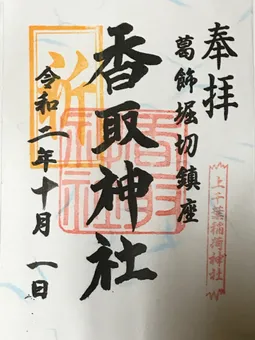 奉拝
葛飾堀切鎮座
上千葉稲荷神社
香取神社
令和二年十月一日